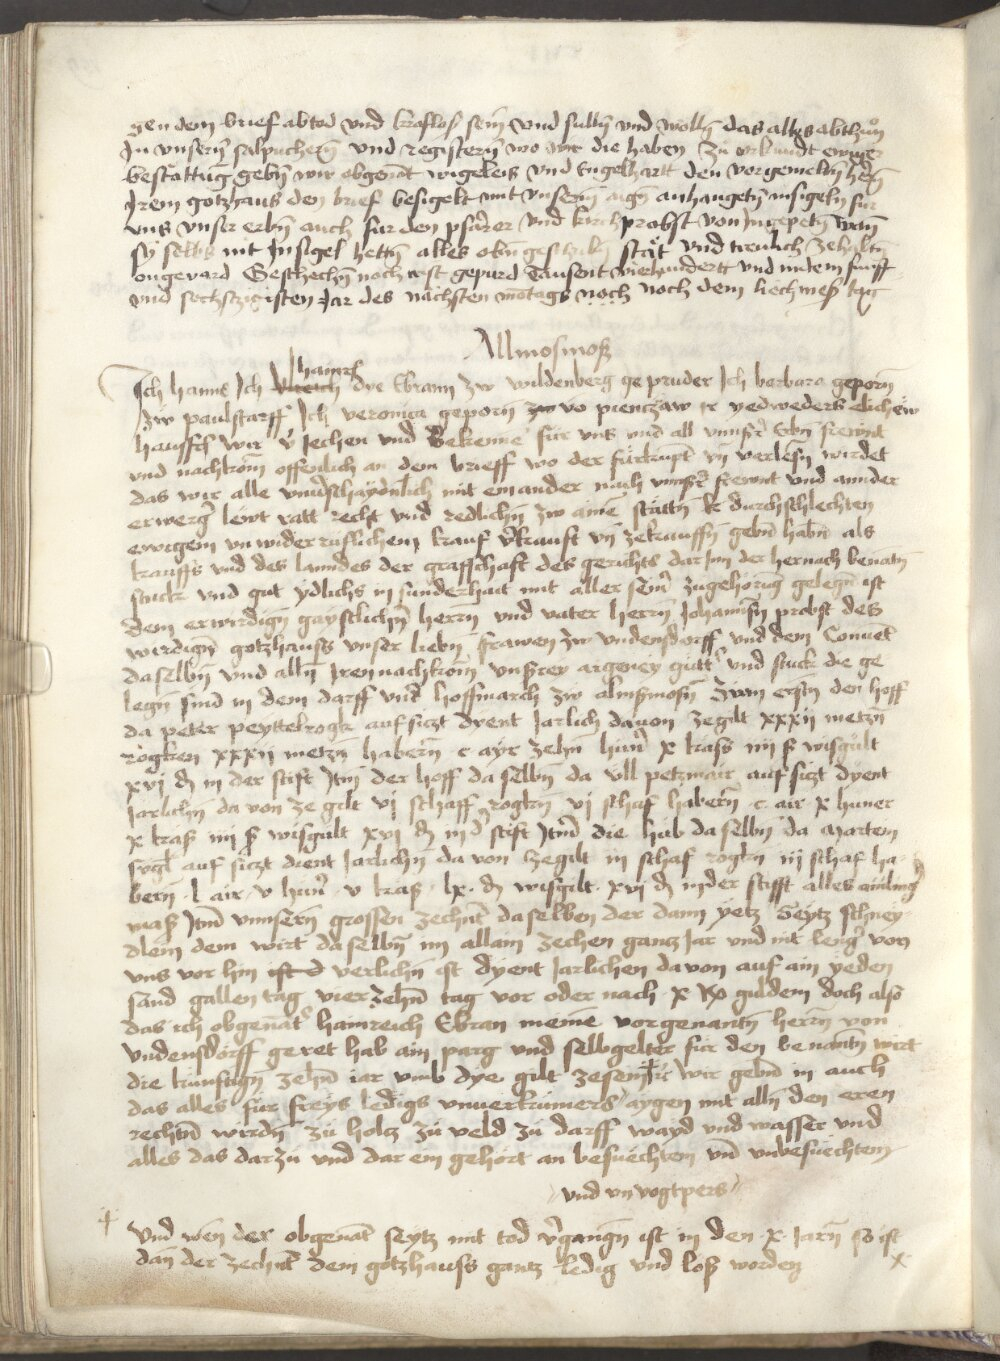 gen dem brief abtod vnd kraflos sein vnd sulln̄ vnd wolln̄ das alles abthun
In vnsern̄ salpuchern̄ vnd registern̄ wo wir die haben Zu vrkundt ewiger
bestattūg gebn̄ wir obgenāt wigeleis vnd Engelhartt den vorgemeltn̄ hern̄
Irem gotzhaus den brief besigelt mit vnsern̄ aign̄ anhangetn̄ insigeln fur
vns vnser erbn̄ auch fur den pfarer vnd kirchprobst von
sy selbs nit Insigel hettn̄ alles obn̄ geschribn̄ stat vnd trewlich zehaltn̄
ongevard Geschechn̄ noch crist gepurd Tausent vierhundertt vnd in dem funff
vnd sechstzigisten Jar des nachsten mōtags noch noch dem liechtmeß tag
Allmosmoß
Ich hanns Ich hainr̄ die Ebrann zw wildenberg gepruder Ich barbara geporn̄
zw paulstarff Ich veronica geporn̄ vō pienczaw ir yedweders elichew
hausfr̄ wir v̄Iechen vnd Bekenne fur vns vnd all vnnser̄ Erbn̄ frewnt
vnd nachkom̄ offenlich an dem brieff wo der furkūpt vn̄ verlesn̄ wirdet
das wir alle vnu̇schaydenlich mit einander nach vnnser̄ frewnt vnd annder
erwerḡ lewt ratt recht vnd redlichn̄ zw aine stattn̄ durchschlechten
ewigem vnwiderruflichem kauf v̄kauft vn̄ zekauffn̄ gebn̄ habn̄ als
kauffs vnd des lanndes der grafschaft des gerichts dar Inn der hernach benantn̄
stuck vnd gut ydlichs in sunderhait mit aller sein̄ zugehorūg gelegn̄ ist
dem erwirdign̄ gaystlichn̄ herrn̄ vnd vater herrn̄ Iohannsn̄ probst des
wirdign̄ gotzhauss vnser liebn̄ frawen zw vndensdorff vnd dem Conuēt
daselbn̄ vnd alln̄ Iren nachkom̄ vnnsrer argeney gutt̄ vnd stuck die ge
legn̄ sind in dem darff vnd hoffmarch zw almssmosn̄ Zum erstn̄ den hoff
da peter peyttelrogk aufsiczt dient Iarlich dauon zegilt xxxij metzn̄
rogken xxxij metzn habern̄ c ayr zehn̄ hun̄ x kass iiij ß wisgult
xvj ₰ in der stift Itm̄ der hoff daselbn̄ da vll petzmair aufsiczt dyent
Iarlichn̄ da von ze gilt vj schaff rogkn̄ vj schaf habern̄ c air x huner
x kaß iiij ß wisgult xvj ₰ in d̄ stift Itm̄ die hub daselbn̄ da Martein
auf siczt dient Iarlichn̄ da von zegilt iij schaf rogkn̄ iij schaf ha
bern̄ l air v hun̄ v kaß lx ₰ wisgilt xvj ₰ in der stifft alles
maß Itm̄ vnnsern̄ grossen zechnt̄ daselben der dann yetz Seytz schney
dlein dem wirt daselbn̄ im allain Zechen gantz Iar vnd nit lenḡ von
vns vor hin verlichn̄ ist dyent Iarlichen da von auf ain yeden
sand gallen tag vierzehn̄ tag vor oder nach x guldein doch also
das ich obgenāt̄ hainreich Ebran meine vorgenantn̄ herrn̄ von
Vndensdorff geret hab ain parg vnd selbgelter fur den benantn̄ wirt
die kunftign̄ zehn̄ iar vmb dye gilt wir gebn̄ in auch
das alles fur freys ledigs vnuerkumers aygen mit alln̄ den eren
rechtn̄ wirdn̄ zu holtz zu veld zu darff wayd vnd wasser vnd
alles das darzu vnd dar ein gehort an besuechtem vn̄ vnbesuechtem
vnd vnvogtpers
+ Vnd wen̄ der obgenāt seytz mit tod v̄gangn̄ ist in den x Iarn̄ so ist
dan̄ der Zechnt̄ dem gotzhauss gantz ledig vnd loß worden x